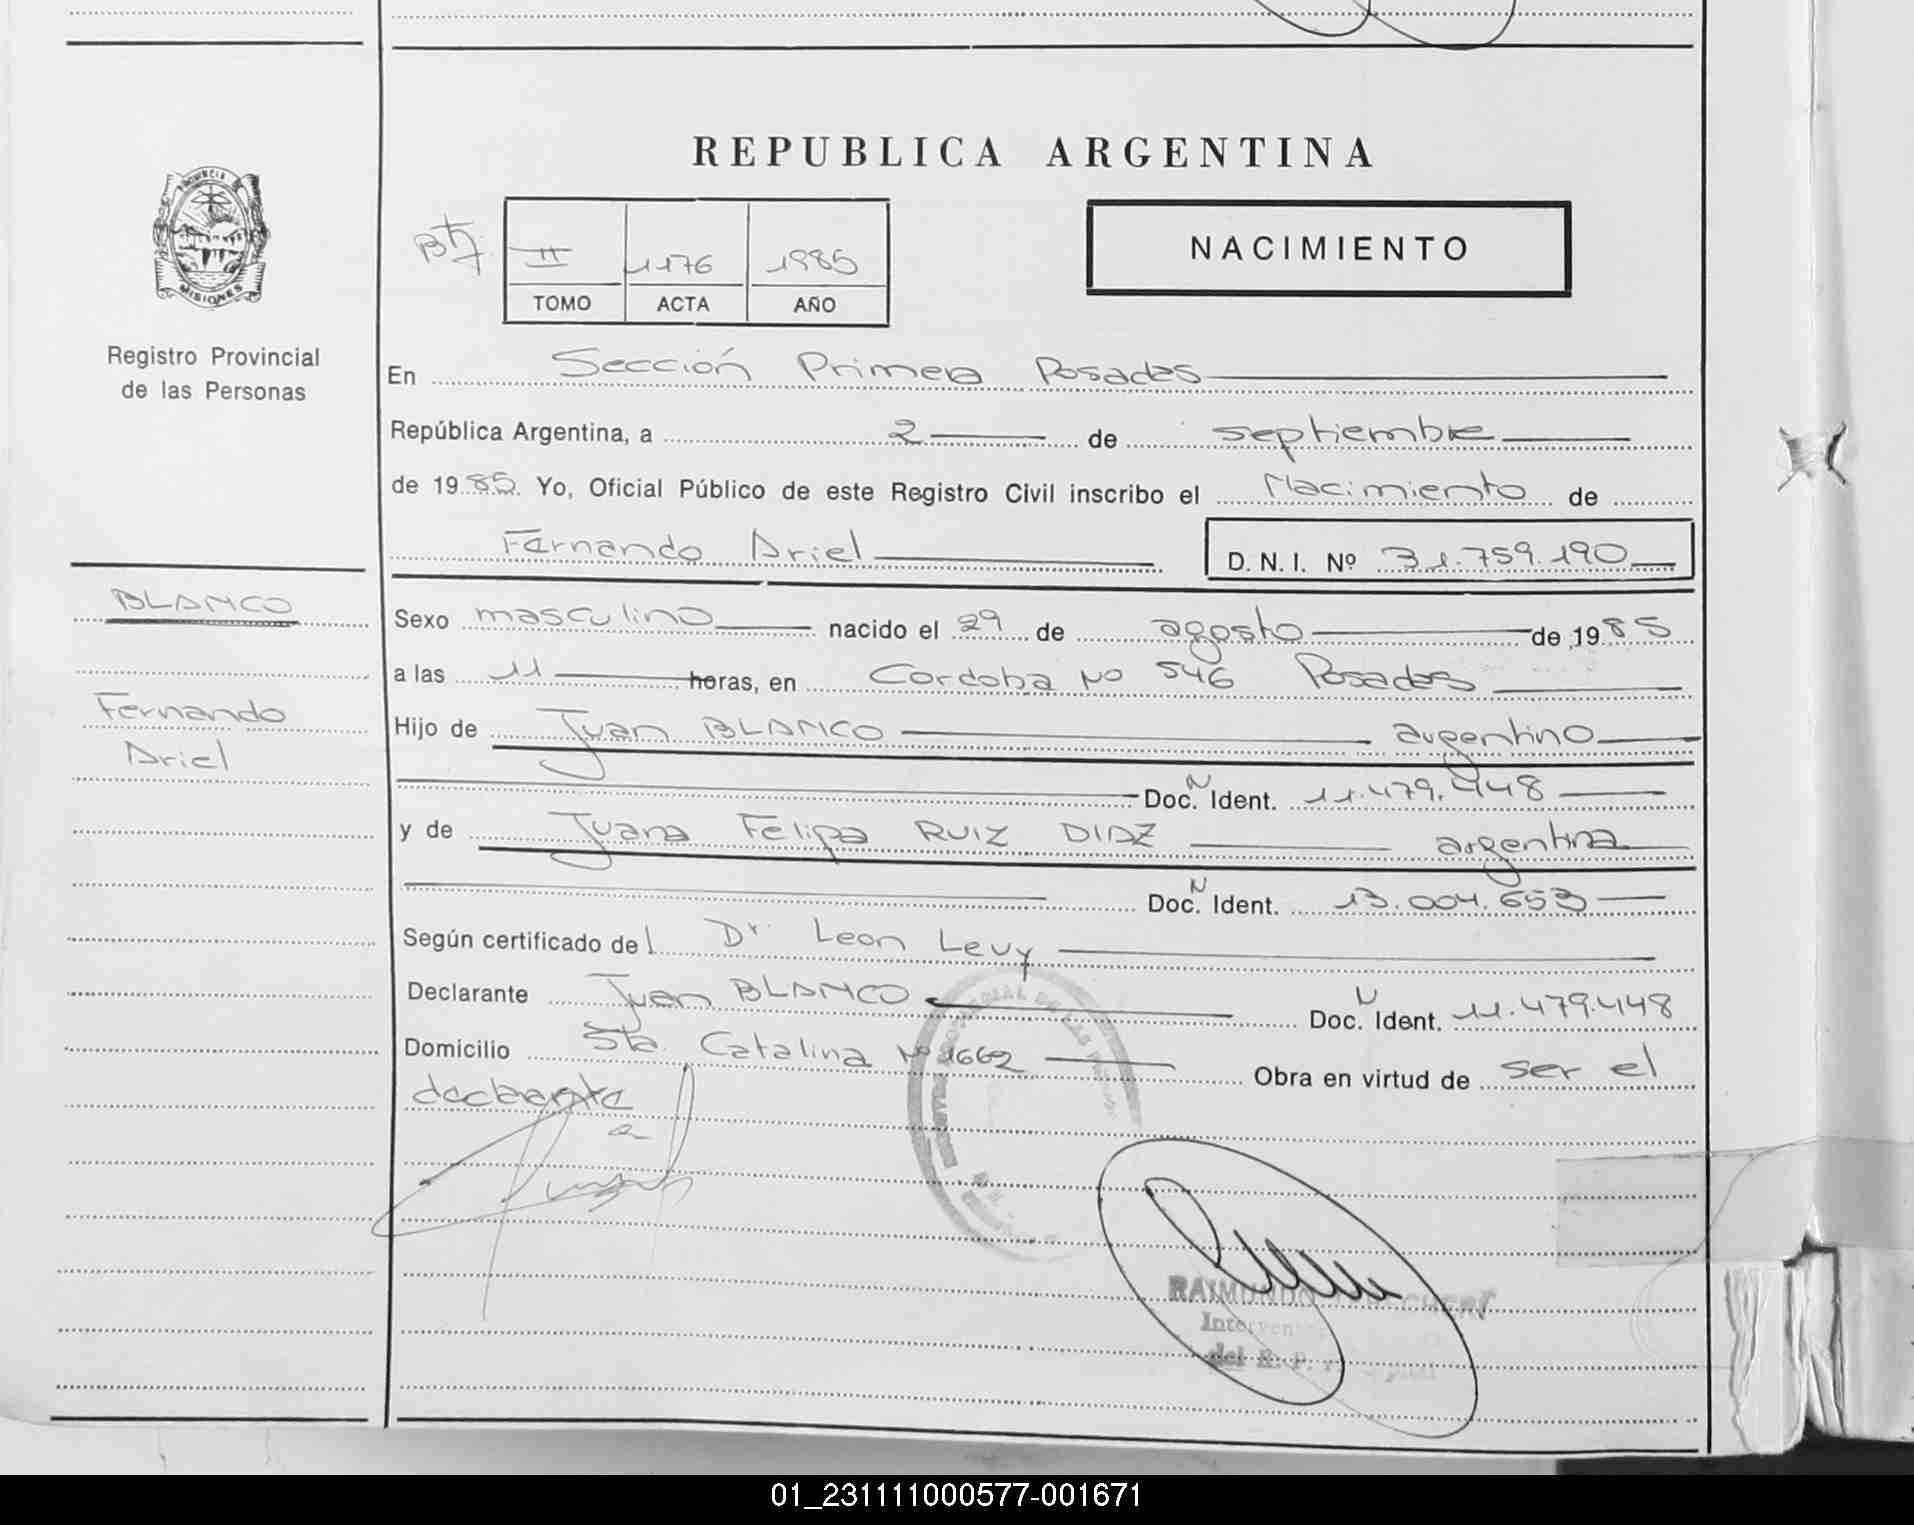 REPUBLICA ARGENTINA
PROVINCIA DE
MISIONES
Registro Provincial
de las Personas
II 1176 1985
TOMO ACTA AÑO
NACIMIENTO
En Sección Primera Posadas
República Argentina, a 2 de septiembre
de 1985. Yo, Oficial Público de este Registro Civil inscribo el Nacimiento de
Fernando Ariel D. N. I. Nº 31.759.190
BLANCO
Fernando
Ariel
Sexo masculino nacido el 29 de agosto de 1985
a las 11 horas, en Cordoba No 546 Posadas
Hijo de Juan BLANCO argentino
Doc. N Ident. 11.479.448
y de Juana Felipa RUIZ DIAZ argentina
Doc. N Ident. 13.004.653
Según certificado del Dr. Leon Levy
Declarante Juan BLANCO Doc. N Ident. 11.479.448
Domicilio Sta Catalina Nº 1662 Obra en virtud de ser el
declarante
RAIMUNDO
del R. P.
01_231111000577-001671